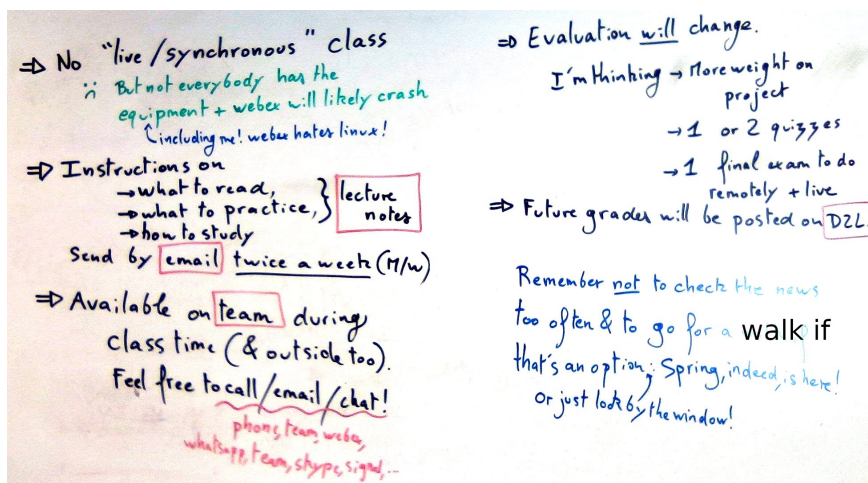 ⇒ No "live/synchronous" class
:( But not everybody has the
equipment + webex will likely crash
including me! webex hates linux!
⇒ Instructions on
→ what to read,
→ what to practice, } lecture notes
→ how to study
Send by email twice a week (M/W)
⇒ Available on team during
class time (& outside too).
Feel free to call/email/chat!
phone, team, webex,
whatsapp, team, skype, signal, ...
⇒ Evaluation will change.
I'm thinking → More weight on
project
→ 1 or 2 quizzes
→ 1 final exam to do
remotely + live
⇒ Future grades will be posted on D2L.
Remember not to check the news
too often & to go for a walk if
that's an option; Spring, indeed, is here!
Or just look by the window!